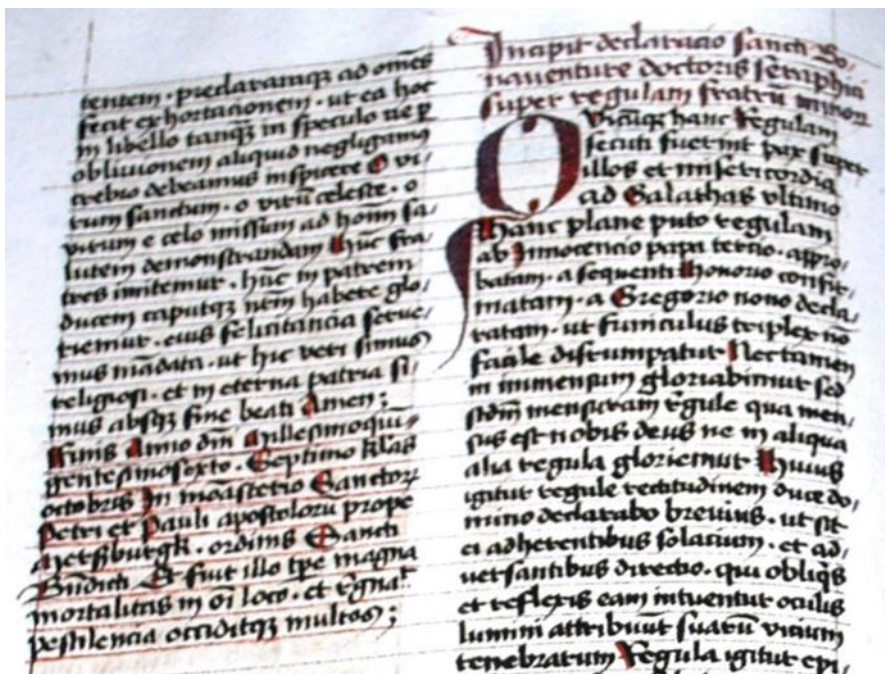 tentem · preclaramqꝫ ad om̄es
fecit exhortacionem · ut ea hoc
in libello tanqꝫ in speculo ne ꝑ
oblivionem aliquid negligamꝰ
crebro debeamus inspicere O vi/
rum sanctum · o virū celeste · o
virum e celo missum ad homī sa/
lutem demonstrandam Hūc fra/
tres imitemur · hūc in patrem
ducem caputqꝫ nr̄m habere glo/
riemur · eius felicitancia serve/
mus mādata · ut hic veri simus
religiosi · et in eterna patria si/
mus absqꝫ fine beati Amen ;
Finis Anno dn̄i Millesimoqui/
gentesimosexto · Septimo klas
octobris In mōasterio Sanctorꝝ
Petri et Pauli apostolorū prope
· ordinis Sancti
Bn̄dicti Et fuit illo tp̄e magna
mortalitas in oī loco · et regna
pestilencia occiditqꝫ multos ;
Incipit declaracio sancti Bo/
naventure doctoris seraphici
super regulam fratrū minorꝝ
Quicūqꝫ hanc Regulam
secuti fuerint pax super
illos et misericordia
ad Galathas ultimo
Hanc plane puto regulam
ab Innocencio papa tercio · appro/
batam · a sequenti Honorio confir/
matam · a Gregorio nono decla/
ratam · ut funiculus triplex nō
facile disrumpatur Nec tamen
in immensum gloriabimur sed
scd̄m mensuram regule qua men/
sus est nobis deus ne in aliqua
alia regula gloriemur Huius
igitur regule rectitudinem duce do/
mino declarabo brevius · ut sit
ei adherentibus solacium · et ad/
versantibus directio · qui obliqꝭ
et reflexis eam intuentur oculis
lumini attribuūt suarū vicium
tenebrarum Regula igitur epi/